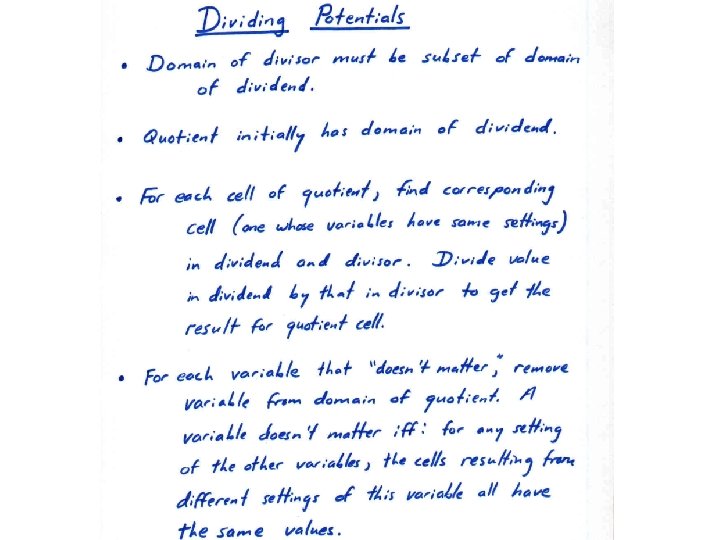 Dividing Potentials
• Domain of divisor must be subset of domain
of dividend.
• Quotient initially has domain of dividend.
• For each cell of quotient, find corresponding
cell (one whose variables have same settings)
in dividend and divisor. Divide value
in dividend by that in divisor to get the
result for quotient cell.
• For each variable that "doesn't matter," remove
variable from domain of quotient. A
variable doesn't matter iff: for any setting
of the other variables, the cells resulting from
different settings of this variable all have
the same values.